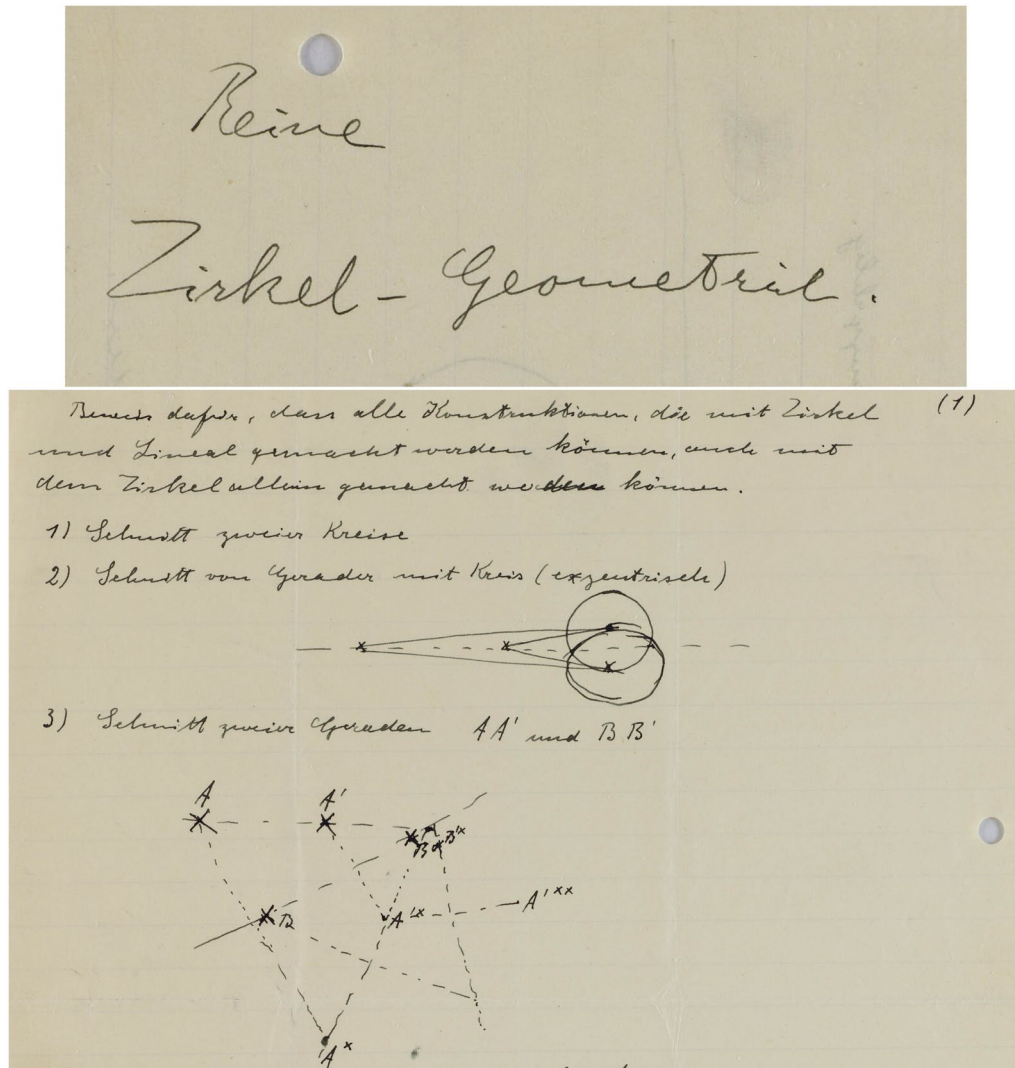 Reine
Zirkel - Geometrie.
Beweis dafür, dass alle Konstruktionen, die mit Zirkel (1)
und Lineal gemacht werden können, auch mit
dem Zirkel allein gemacht werden können.
1) Schnitt zweier Kreise
2) Schnitt von Gerader mit Kreis (exzentrisch)
3) Schnitt zweier Geraden AA' und BB'
A A'
B'x
B A'x A'xx
A x